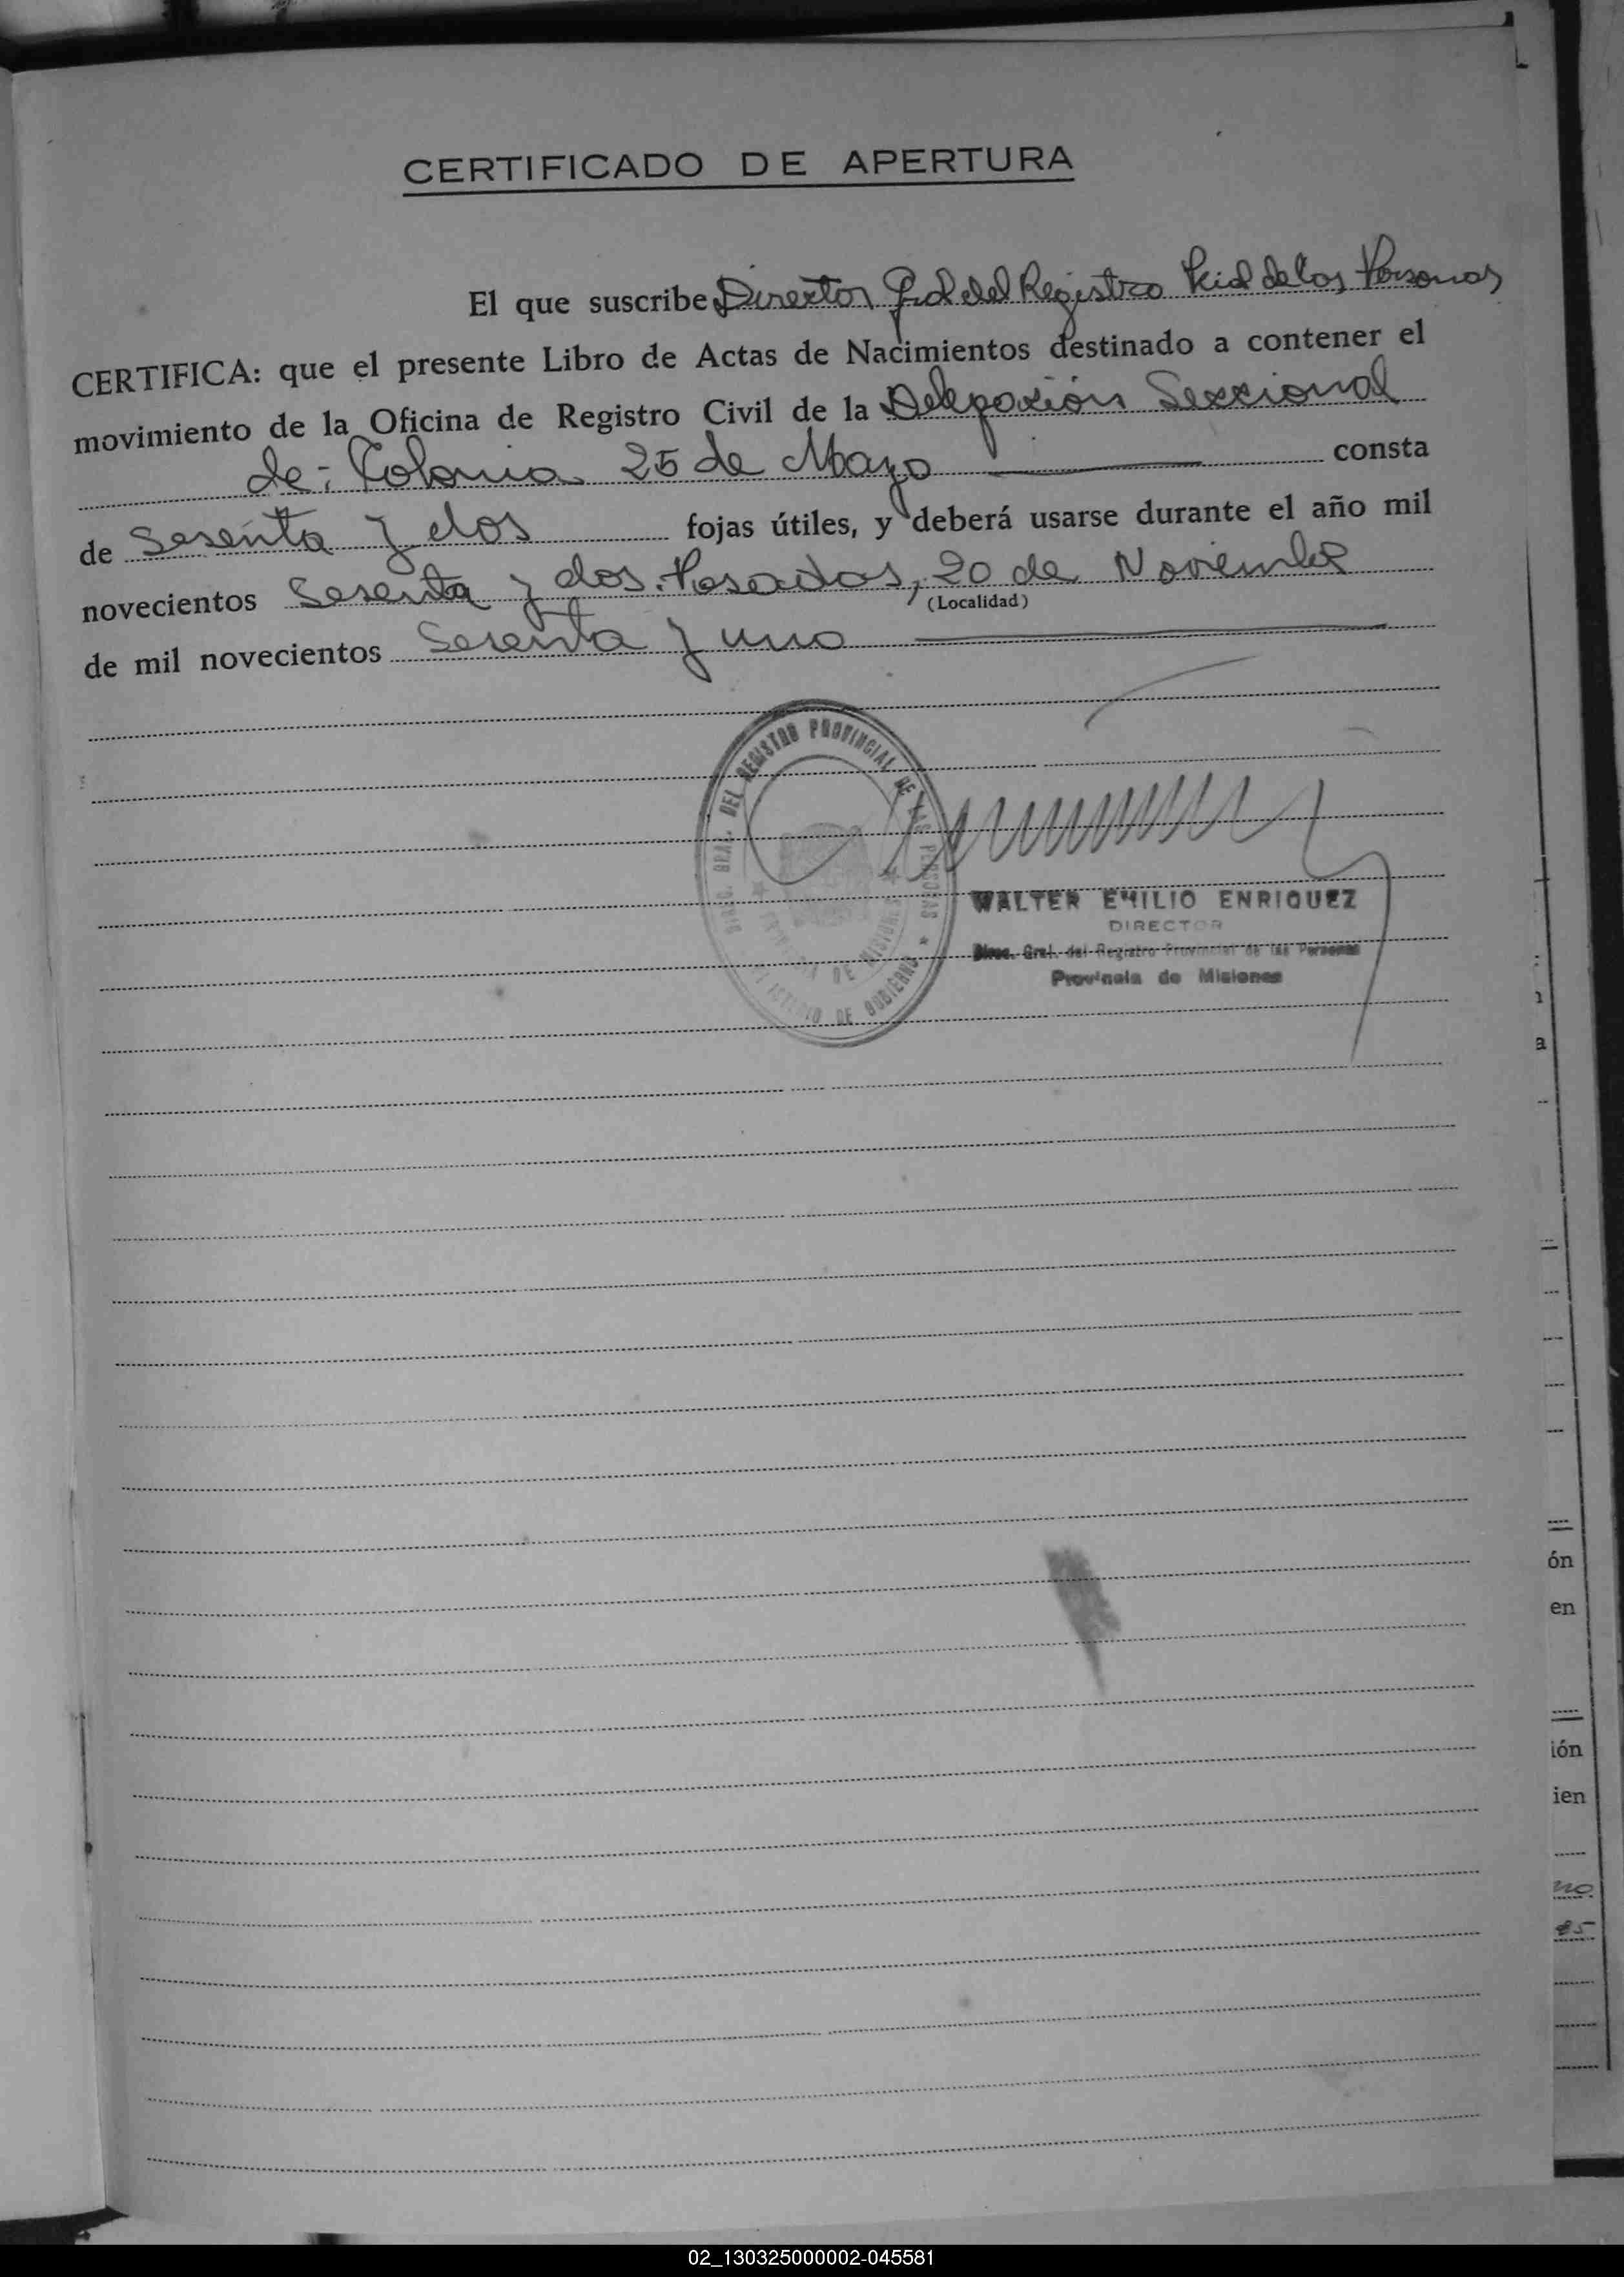 CERTIFICADO DE APERTURA
El que suscribe Director Gral del Registro Pcial de las Personas
CERTIFICA: que el presente Libro de Actas de Nacimientos destinado a contener el
movimiento de la Oficina de Registro Civil de la Delegación Seccional
de: Colonia 25 de Mayo consta
de Sesenta y dos fojas útiles, y deberá usarse durante el año mil
novecientos Sesenta y dos. Posadas, 20 de Noviembre
(Localidad)
de mil novecientos Sesenta y uno
DIREC. GRAL. DEL REGISTRO PROVINCIAL DE LAS PERSONAS
PROVINCIA DE MISIONES
MINISTERIO DE GOBIERNO
WALTER EMILIO ENRIQUEZ
DIRECTOR
Direc. Gral. del Registro Provincial de las Personas
Provincia de Misiones
a
ón
en
ión
ien
no
85
02_130325000002-045581